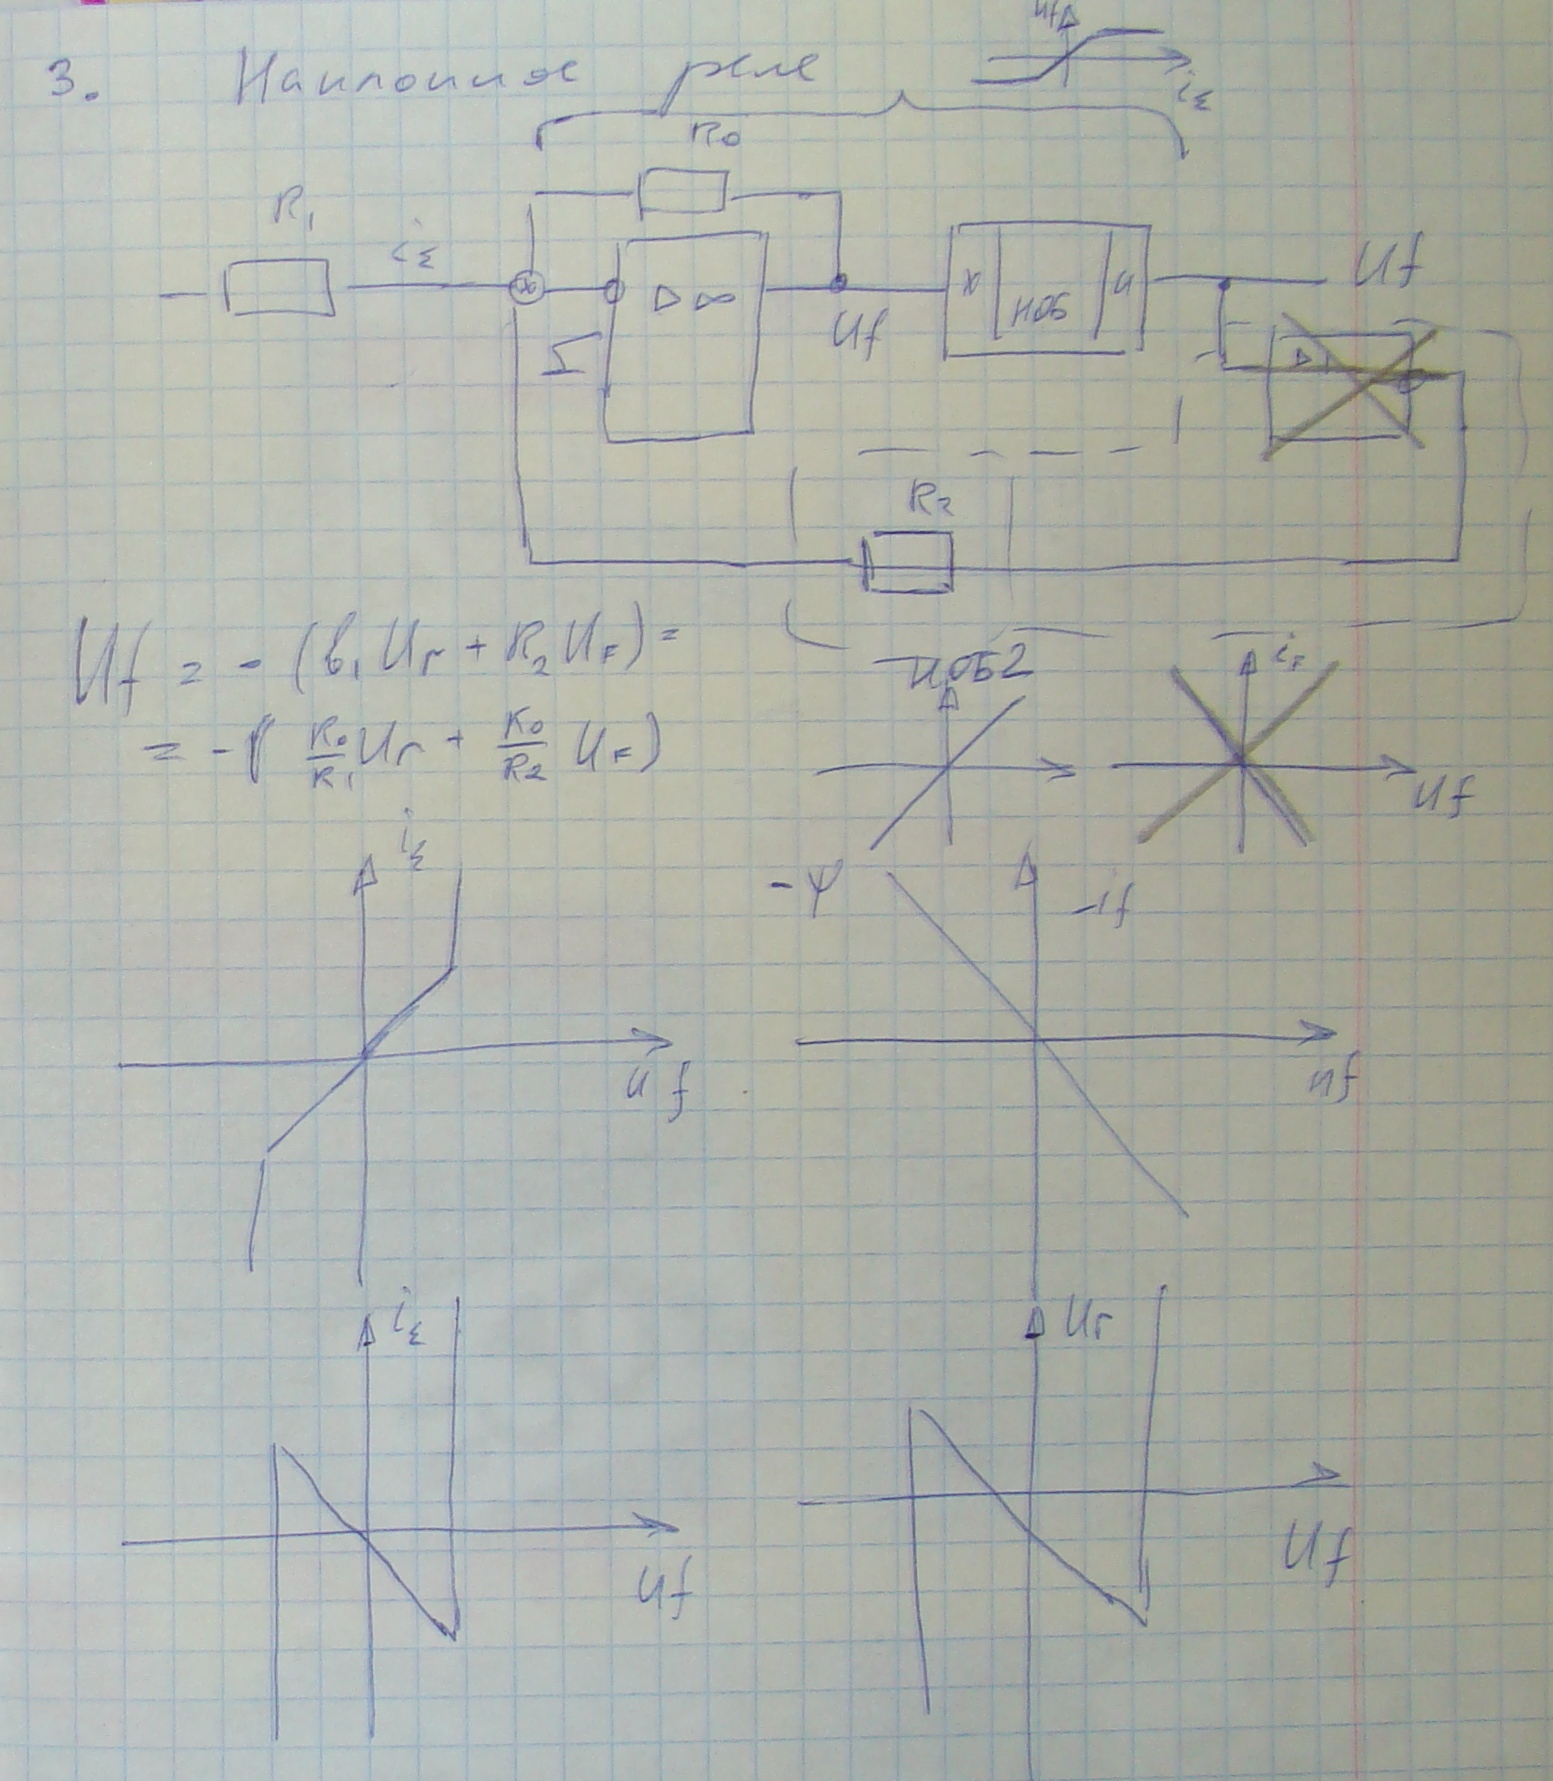 3. Наклонное реле
Uf
iε
R₀
R₁
iε
▷ ∞
Uf
X НОБ U
Uf
▷1
R₂
Uf = - (b₁Uг + R₂UF) =
= - ( R₀/R₁ Uг + R₀/R₂ UF)
НОБ2
iF
Uf
iε
Uf
-Ψ
-if
Uf
iε
Uf
Uг
Uf